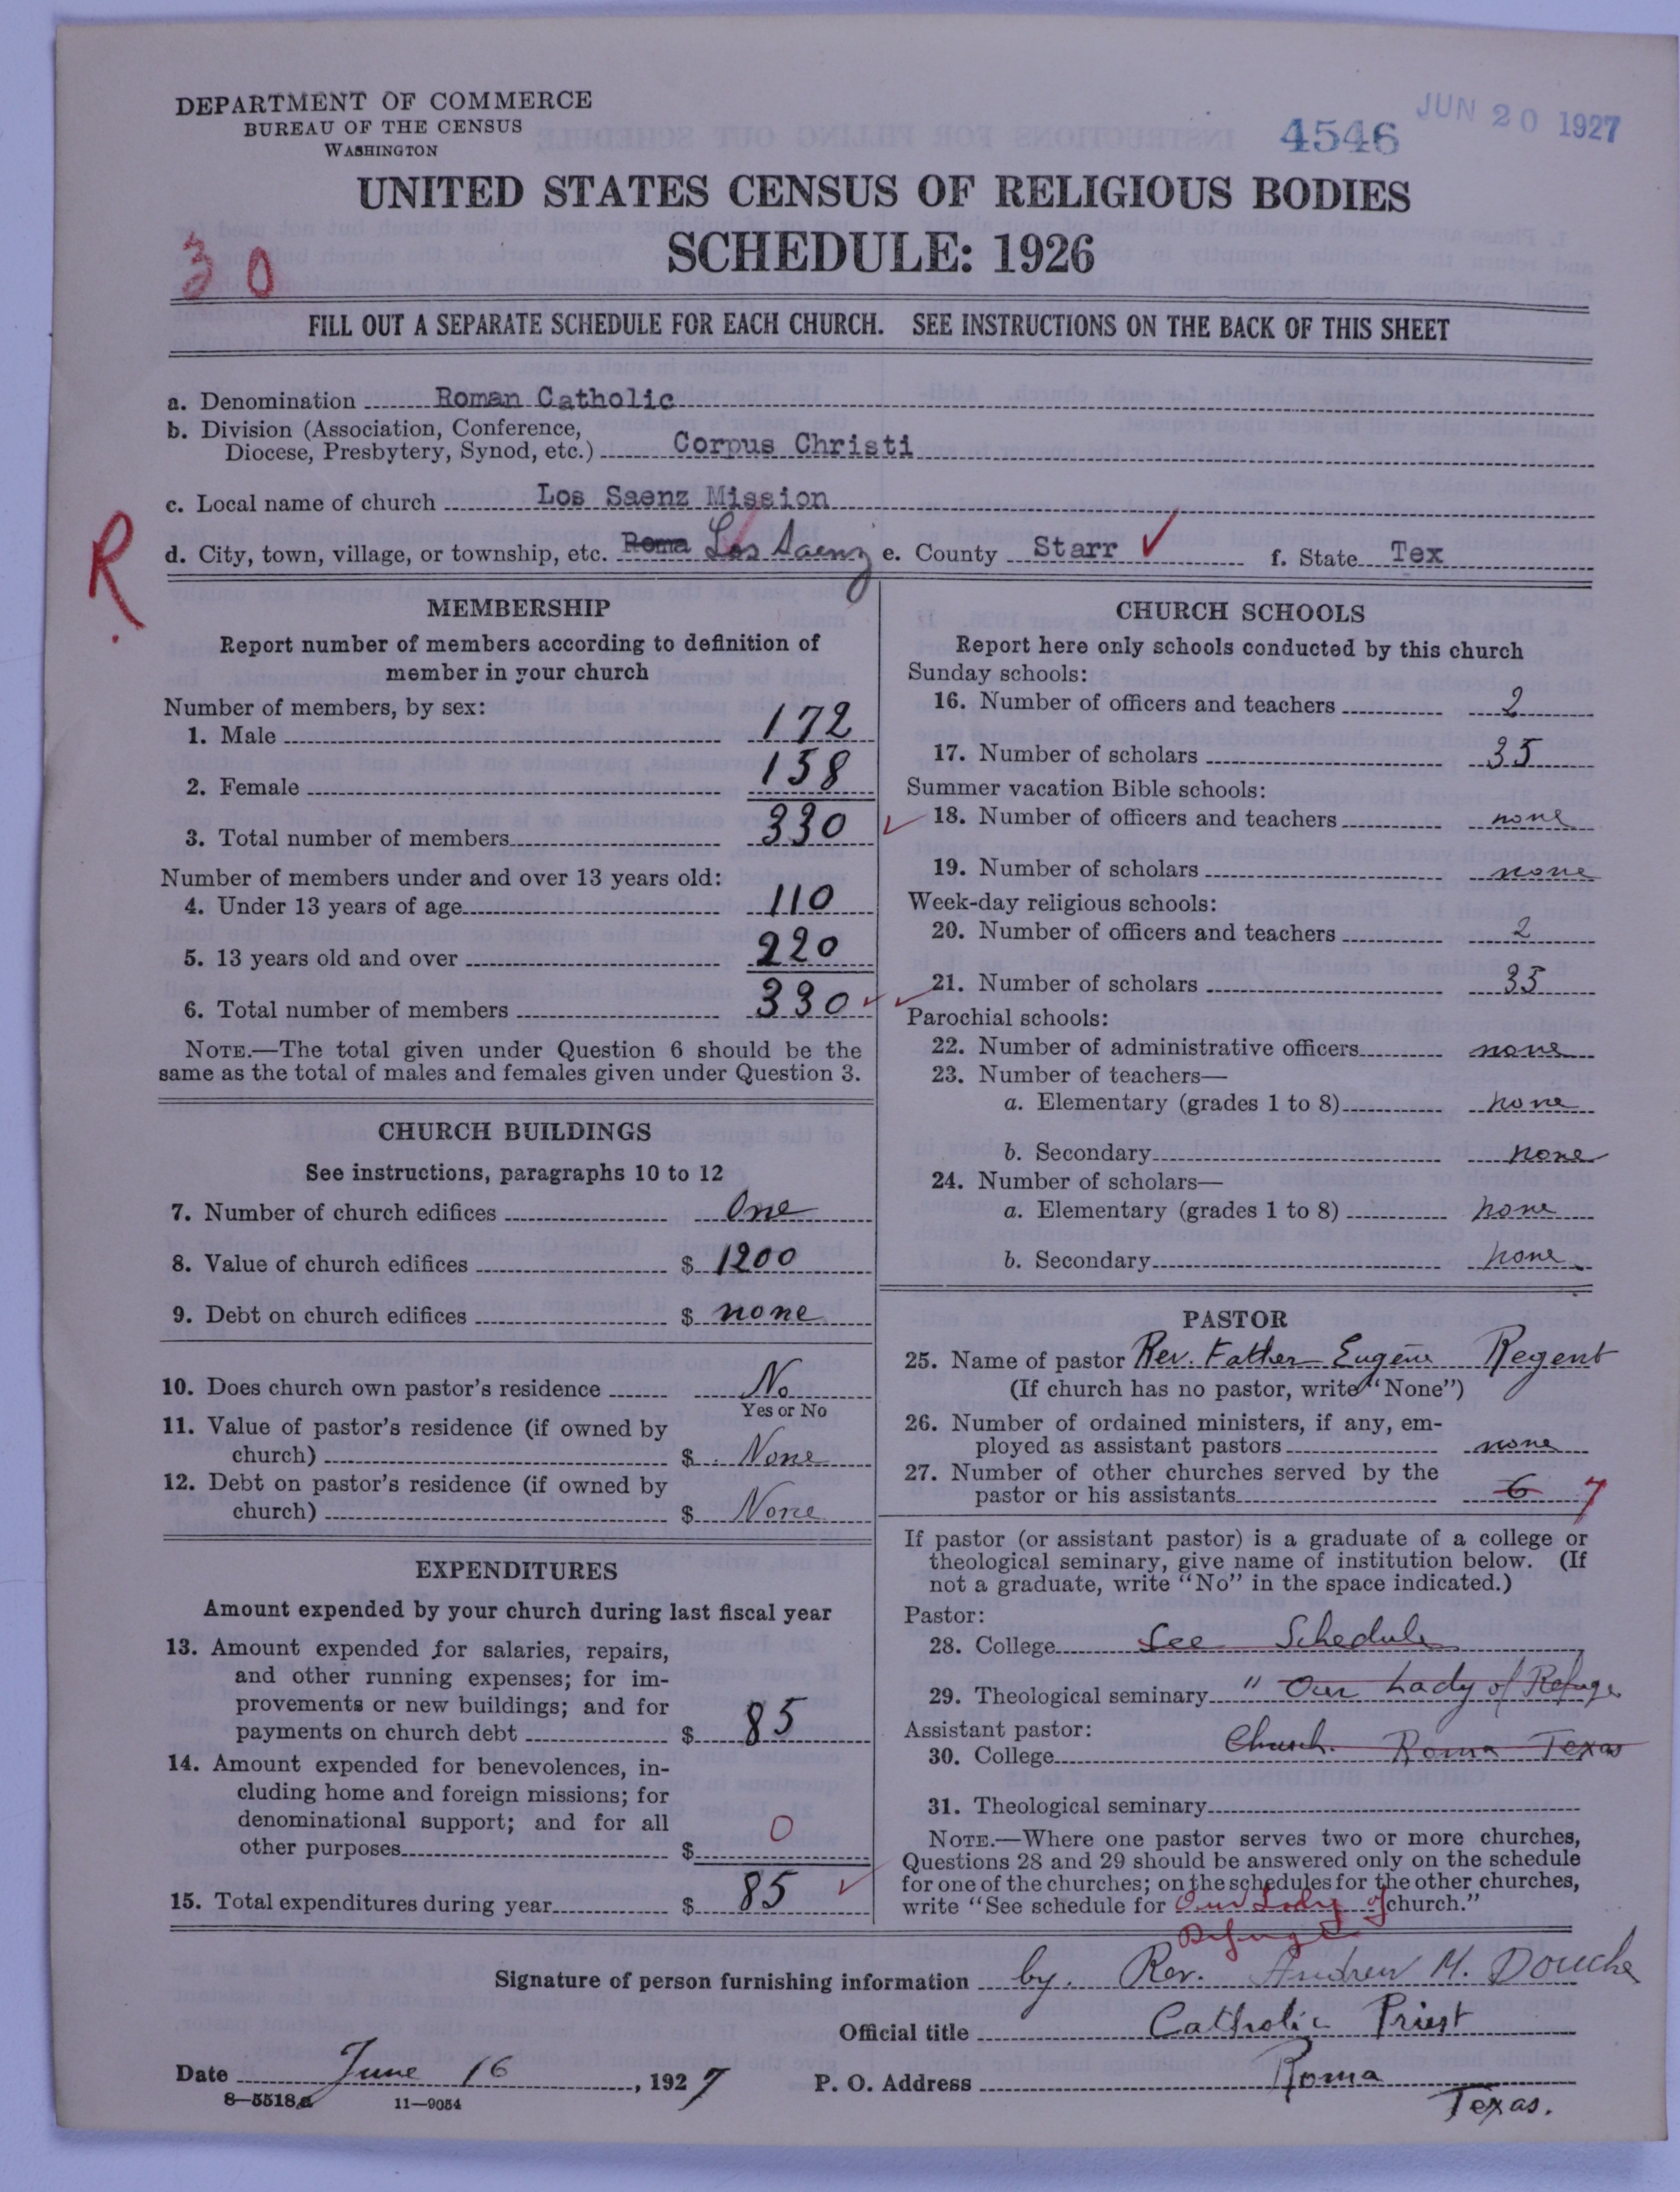 DEPARTMENT OF COMMERCE
BUREAU OF THE CENSUS
WASHINGTON
4546
JUN 20 1927
UNITED STATES CENSUS OF RELIGIOUS BODIES
SCHEDULE: 1926
30
FILL OUT A SEPARATE SCHEDULE FOR EACH CHURCH. SEE INSTRUCTIONS ON THE BACK OF THIS SHEET
a. Denomination Roman Catholic
b. Division (Association, Conference,
Diocese, Presbytery, Synod, etc.) Corpus Christi
c. Local name of church Los Saenz Mission
d. City, town, village, or township, etc. Roma Los Saenz e. County Starr ✓ f. State Tex
R.
MEMBERSHIP
Report number of members according to definition of
member in your church
Number of members, by sex:
1. Male 172
2. Female 158
3. Total number of members 330 ✓
Number of members under and over 13 years old:
4. Under 13 years of age 110
5. 13 years old and over 220
6. Total number of members 330 ✓ ✓
NOTE.—The total given under Question 6 should be the
same as the total of males and females given under Question 3.
CHURCH BUILDINGS
See instructions, paragraphs 10 to 12
7. Number of church edifices One
8. Value of church edifices $ 1200
9. Debt on church edifices $ none
10. Does church own pastor's residence No
Yes or No
11. Value of pastor's residence (if owned by
church) $ None
12. Debt on pastor's residence (if owned by
church) $ None
EXPENDITURES
Amount expended by your church during last fiscal year
13. Amount expended for salaries, repairs,
and other running expenses; for im-
provements or new buildings; and for
payments on church debt $ 85
14. Amount expended for benevolences, in-
cluding home and foreign missions; for
denominational support; and for all
other purposes $ 0
15. Total expenditures during year $ 85 ✓
CHURCH SCHOOLS
Report here only schools conducted by this church
Sunday schools:
16. Number of officers and teachers 2
17. Number of scholars 35
Summer vacation Bible schools:
18. Number of officers and teachers none
19. Number of scholars none
Week-day religious schools:
20. Number of officers and teachers 2
21. Number of scholars 35
Parochial schools:
22. Number of administrative officers none
23. Number of teachers—
a. Elementary (grades 1 to 8) none
b. Secondary none
24. Number of scholars—
a. Elementary (grades 1 to 8) none
b. Secondary none.
PASTOR
25. Name of pastor Rev. Father Eugene Regent
(If church has no pastor, write "None")
26. Number of ordained ministers, if any, em-
ployed as assistant pastors none
27. Number of other churches served by the
pastor or his assistants 6 7
If pastor (or assistant pastor) is a graduate of a college or
theological seminary, give name of institution below. (If
not a graduate, write "No" in the space indicated.)
Pastor:
28. College See Schedule
29. Theological seminary " Our Lady of Refuge
Assistant pastor:
30. College Church. Roma Texas
31. Theological seminary
NOTE.—Where one pastor serves two or more churches,
Questions 28 and 29 should be answered only on the schedule
for one of the churches; on the schedules for the other churches,
write "See schedule for Our Lady of church."
Refuge
Signature of person furnishing information by. Rev. Andrew M. Douche
Official title Catholic Priest
Date June 16, 1927 P. O. Address Roma
Texas.
8—5518a 11—9054